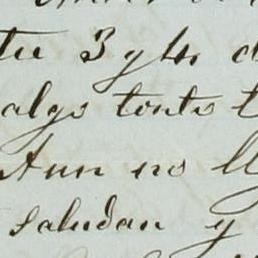 tu 3 y 4
algo tonto t
Aun no ll
saludan y